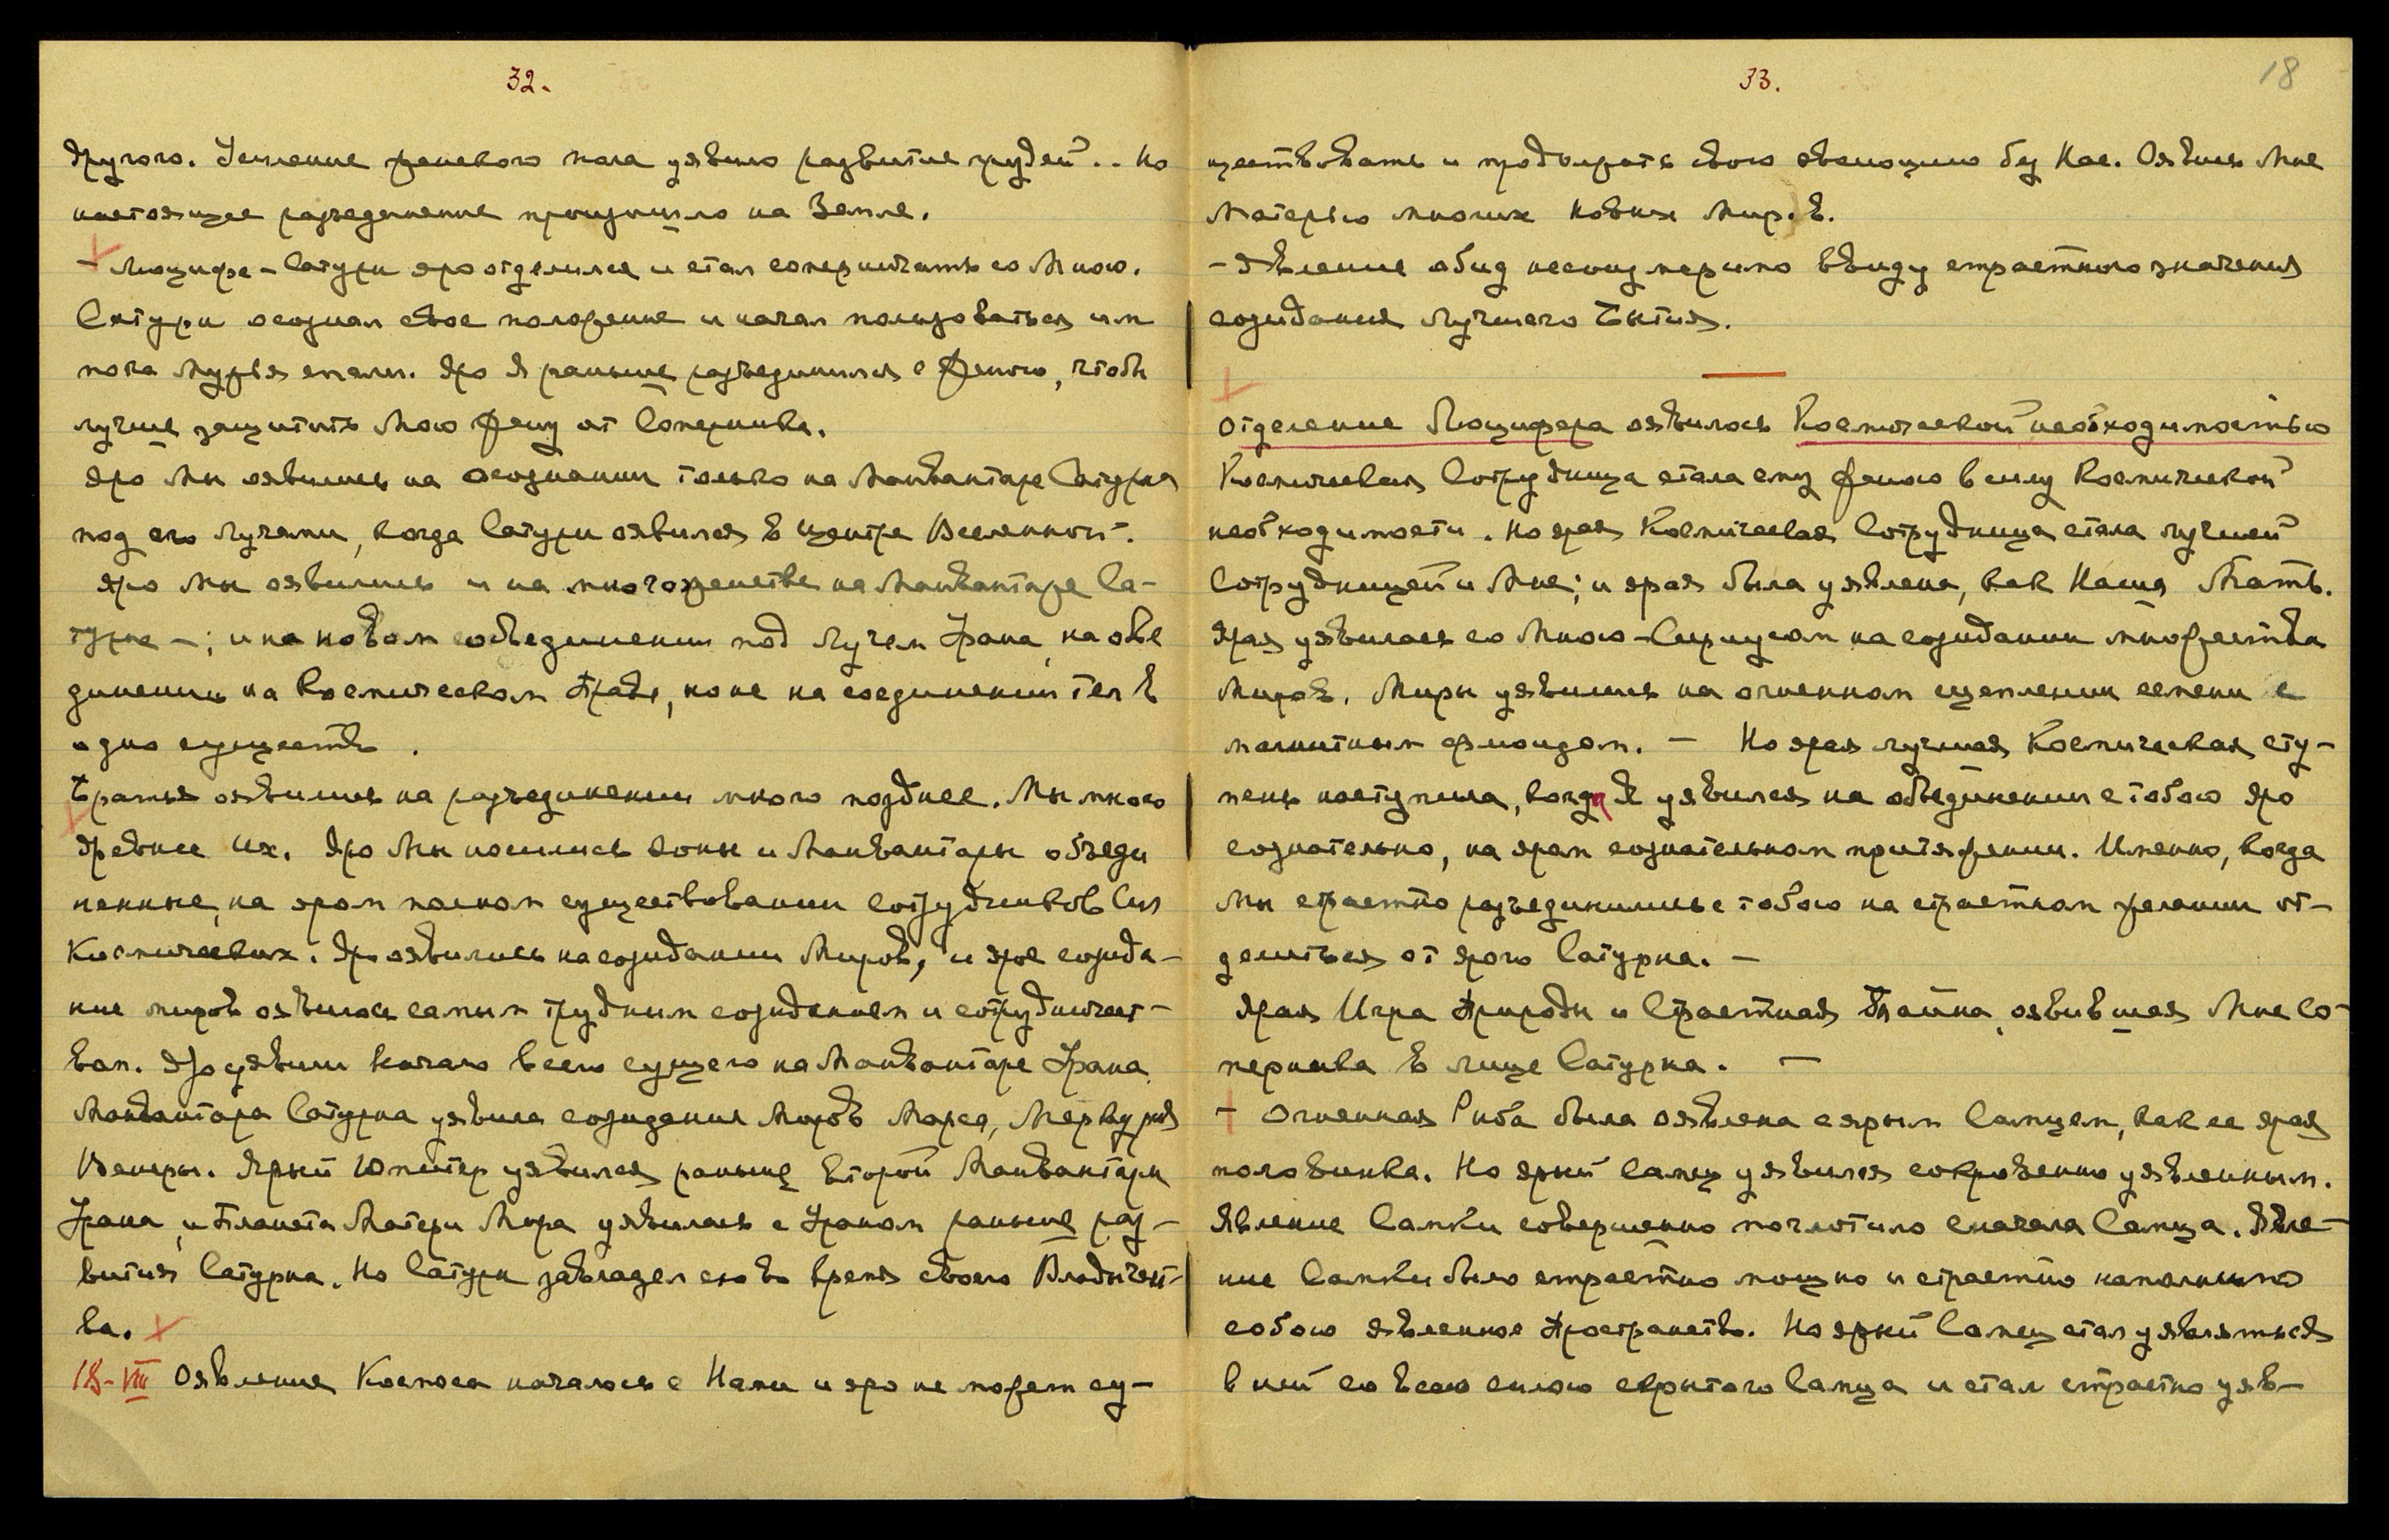 32.
другого. Усиление женского пола уявило развитие грудей.. Но
настоящее разъединение произошло на Земле.
– Люцифер – Сатурн яро отделился и стал соперничать со Мною.
Сатурн осознал свое положение и начал пользоваться им
пока Мужья спали. Яро Я раньше разъединился с Женою, чтобы
лучше защитить Мою Жену от Соперника.
Яро Мы оявились на осознании только на Манвантаре Сатурна
под его лучами, когда Сатурн оявился в центре Вселенной.
Яро Мы оявились и на многоженстве на Манвантаре Са-
турна –; и на новом объединении под Лучем Урана, на объе
динении на Космическом Праве, но не на соединении тел в
одно существо.
Братья оявились на разъединении много позднее. Мы много
древнее их. Яро Мы носились эоны и Манвантары объеди
ненные, на яром полном существовании сотрудников Сил
Космических. Яро оявились на созидании Миров, и ярое созида-
ние миров оявилось самым трудным созиданием и сотрудничест-
вом. Яро уявили начало всего сущего на Манвантаре Урана.
Манвантара Сатурна уявила созидания Миров Марса, Меркурия
Венеры. Ярый Юпитер уявился раньше второй Манвантары
Урана, и Планета Матери Мира уявилась с Ураном раньше раз-
вития Сатурна. Но Сатурн завладел ею во время своего Владычест-
ва.
18-VIII Оявление Космоса началось с Нами и яро не может су-
33.
18
ществовать и продолжать свою эволюцию без Нас. Оявись Мне
Матерью многих новых Миров.
– Явление обид несоизмеримо ввиду страстного значения
созидания лучшего Бытия.
Отделение Люцифера оявилось Космической необходимостью
Космическая Сотрудница стала ему женою в силу Космической
необходимости. Но ярая Космическая Сотрудница стала лучшей
Сотрудницей и Мне; и ярая была уявлена, как Наша Мать.
Ярая уявилась со Мною – Сириусом на созидании множества
Миров. Миры уявились на огненном сцеплении семени с
магнитным флюидом. – Но ярая лучшая Космическая сту-
пень наступила, когда Я уявился на объединении с тобою яро
сознательно, на яром сознательном притяжении. Именно, когда
мы страстно разъединились с тобою на страстном желании от-
делиться от ярого Сатурна. –
Ярая Игра Природы и Страстная Тайна, оявившая Мне Со-
перника в лице Сатурна. –
– Огненная Рыба была оявлена с ярым Самцем, как ее ярая
половинка. Но ярый самец уявился сокровенно уявленным.
Явление Самки совершенно поглотило сначала Самца. Явле-
ние Самки было страстно мощно и страстно наполнило
собою явленное Пространство. Но ярый Самец стал уявляться
в ней со всею силою скрытого Самца и стал страстно уяв-